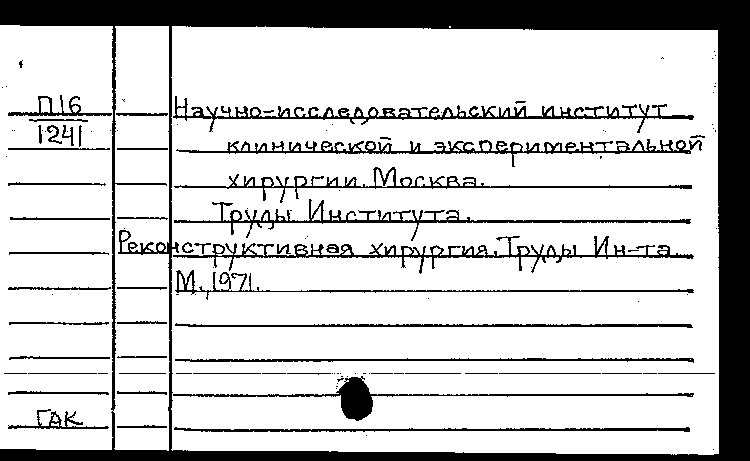 П16
1241
Научно-исследовательский институт
клинической и экспериментальной
хирургии. Москва.
Труды Института.
Реконструктивная хирургия. Труды Ин-та
М., 1971.
ГАК